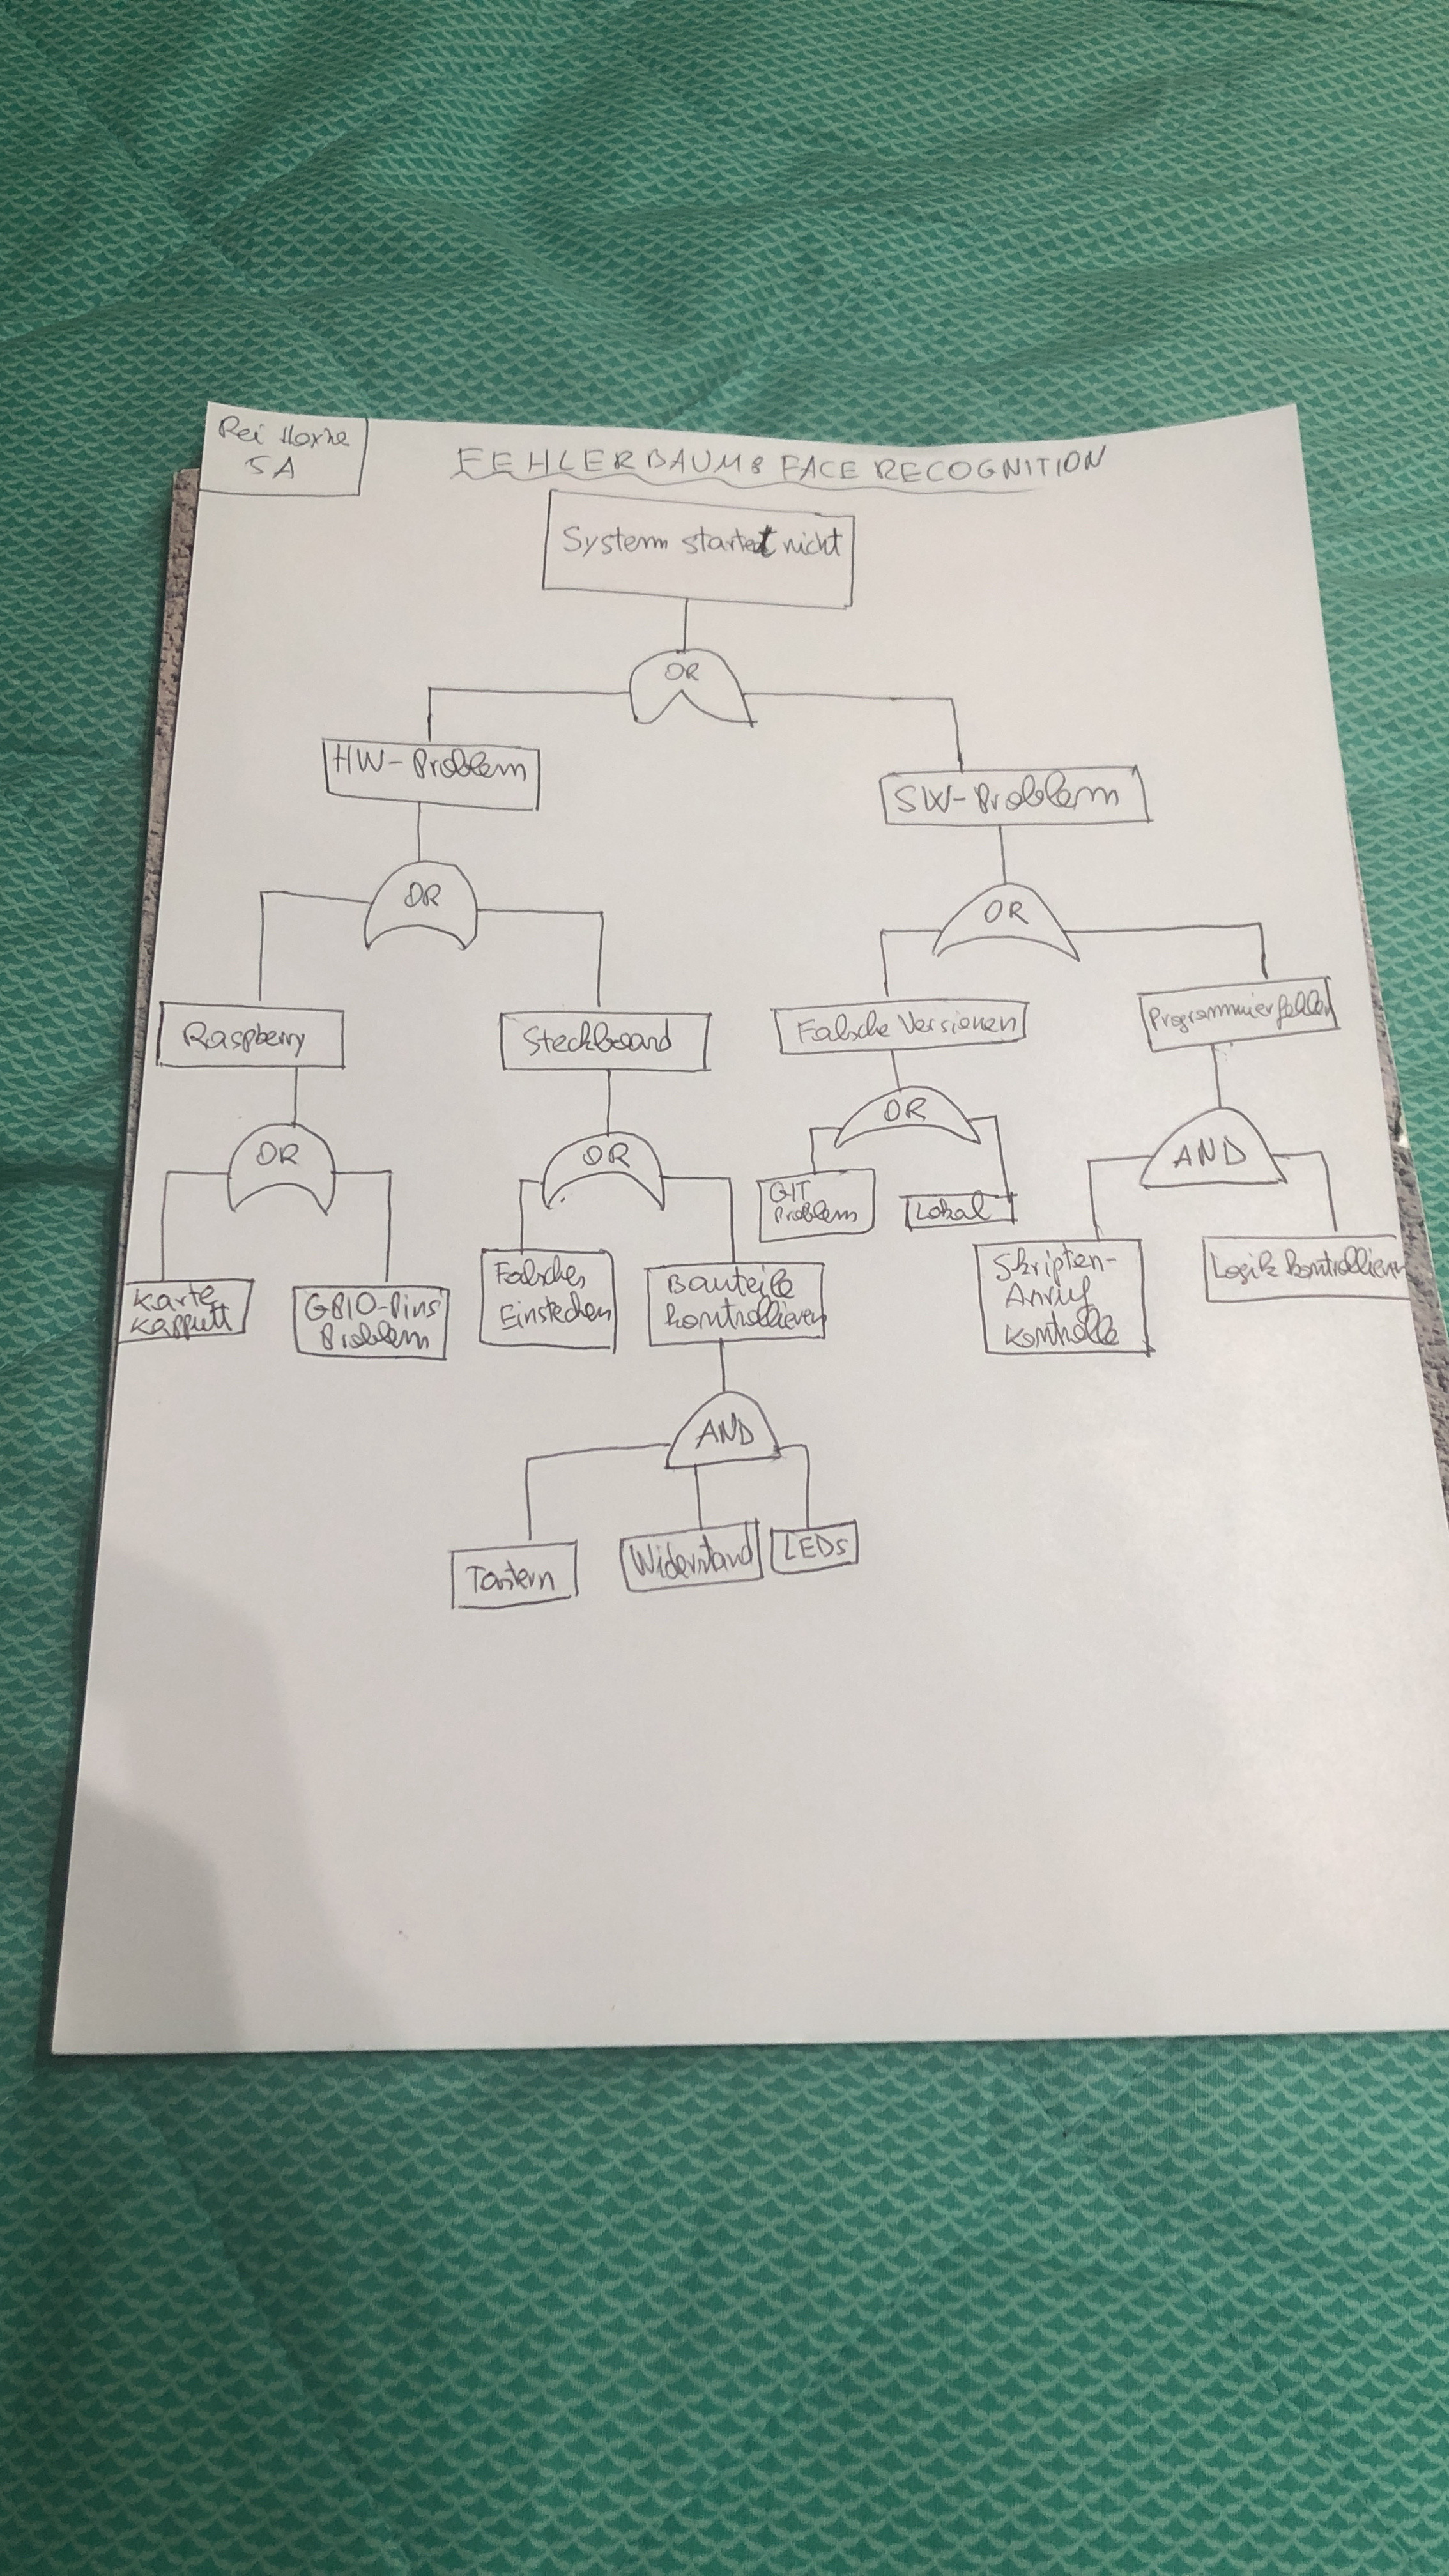 Rei Hoxha
5A
FEHLERBAUM: FACE RECOGNITION
System startet nicht
OR
HW-Problem
SW-Problem
OR
OR
Raspberry
Steckboard
Falsche Versionen
Programmierfehler
OR
OR
OR
AND
GIT
Problem
Lokal
Karte
Kapputt
GPIO-Pins
Problem
Falsches
Einstecken
Bauteile
kontrollieren
Skripten-
Anruf
Kontrolle
Logik kontrollieren
AND
Tastern
Widerstand
LEDs